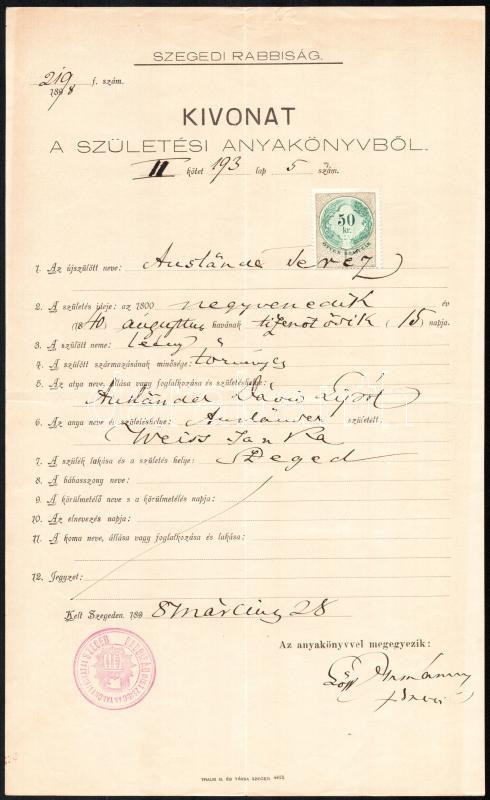 SZEGEDI RABBISÁG.
219 f. szám.
1898
KIVONAT
A SZÜLETÉSI ANYAKÖNYVBŐL.
II kötet 193 lap 5 szám.
50
kr.
1. Az újszülött neve: Ausländer Terez
2. A születés ideje: az 1800 negyvenedik év
(1840) augusztus havának tizenötödik (15) napja.
3. A szülött neme: leány
4. A szülött származásának minősége: törvényes
5. Az atya neve, állása vagy foglalkozása és születéshelye:
Ausländer Dávid Lipót
6. Az anya neve és születéshelye: Ausländer született
Weiss Janka
7. A szülék lakása és a születés helye: Szeged
8. A bábasszony neve:
9. A körülmetélő neve s a körülmetélés napja:
10. Az elnevezés napja:
11. A koma neve, állása vagy foglalkozása és lakása:
12. Jegyzet:
Kelt Szegeden, 1898 március 28
Az anyakönyvvel megegyezik:
Löw
TRAUB B. ÉS TÁRSA SZEGED